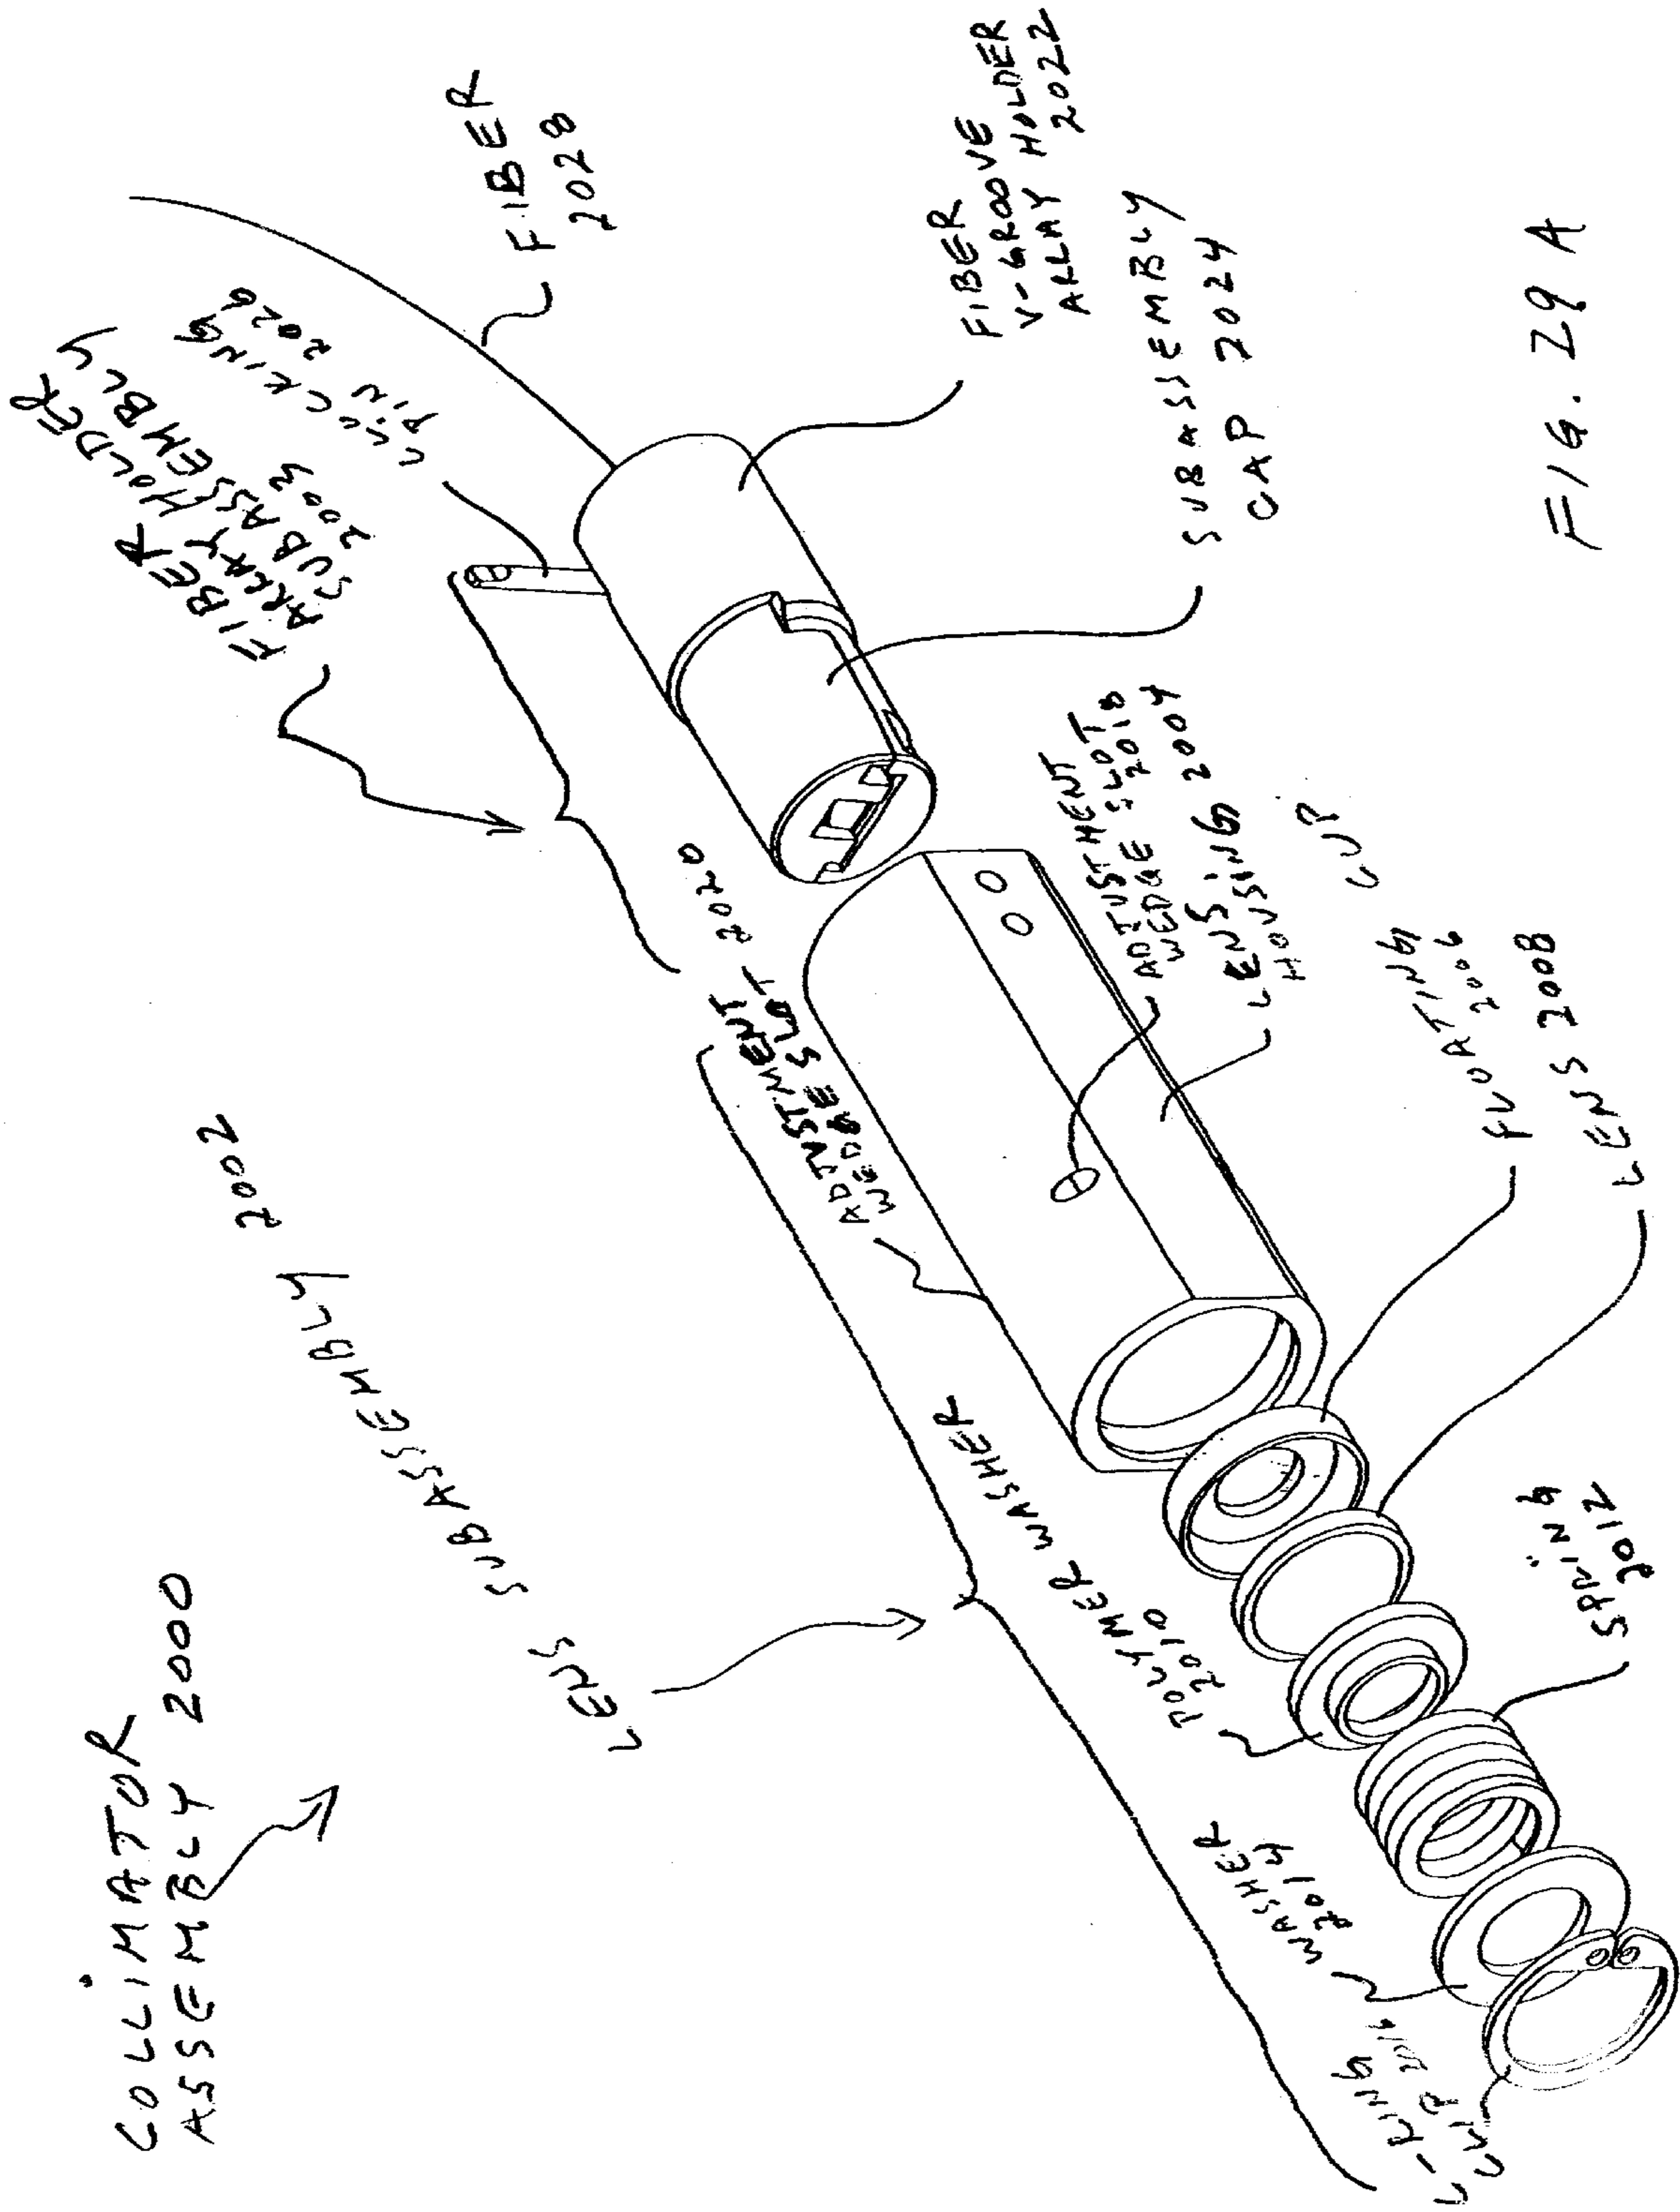 COLLIMATOR
ASSEMBLY 2000
LENS SUBASSEMBLY 2002
FIBER HOLDER
ARRAY
SUBASSEMBLY
2003
LOCKING
PIN 2026
FIBER
2028
FIBER
V-GROOVE
ARRAY HOLDER
2022
SUBASSEMBLY
CAP 2024
ADJUSTMENT
WEDGE SLOT 2020
ADJUSTMENT
WEDGE SLOT
2018
LENS
HOUSING 2004
FLOATING CUP
2006
LENS 2008
POLYMER WASHER
2010
SPRING
2012
WASHER
2014
C-RING
CLIP 2016
FIG. 29A